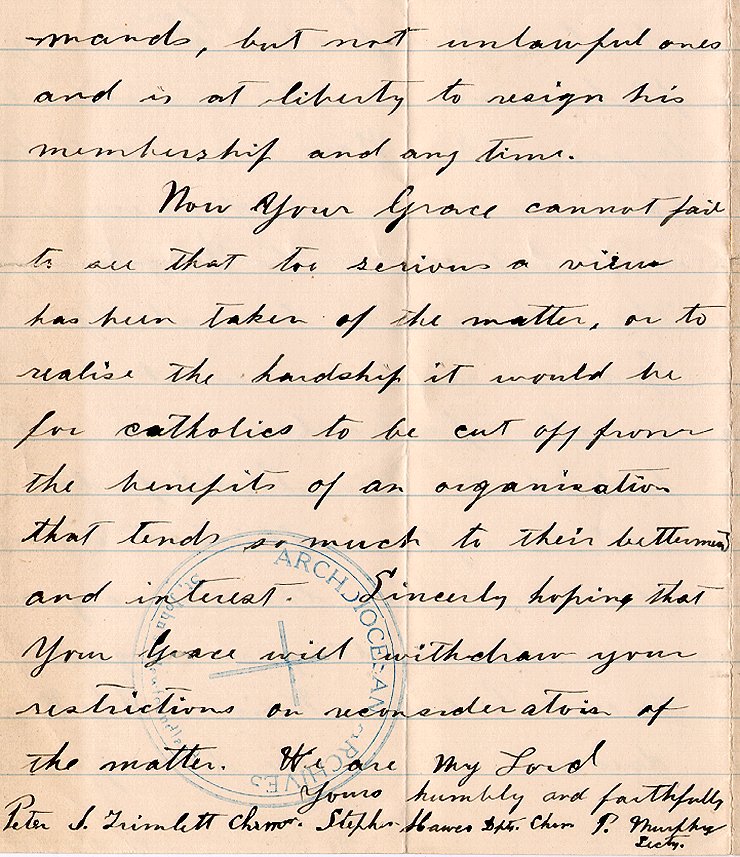 mands, but not unlawful ones
and is at liberty to resign his
membership and any time.
Now Your Grace cannot fail
to see that too serious a view
has been taken of the matter, or to
realise the hardship it would be
for catholics to be cut off from
the benefits of an organization
that tends so much to their betterment
and interest. Sincerly hoping that
Your Grace will withdraw your
restrictions on reconsideration of
the matter. We are My Lord
Yours humbly and faithfully
Peter S. Trimlett Chrmn. Stephen Hawes Dpty. Chrm P. Murphy
Secty.
ARCHDIOCESAN ARCHIVES
St. John's